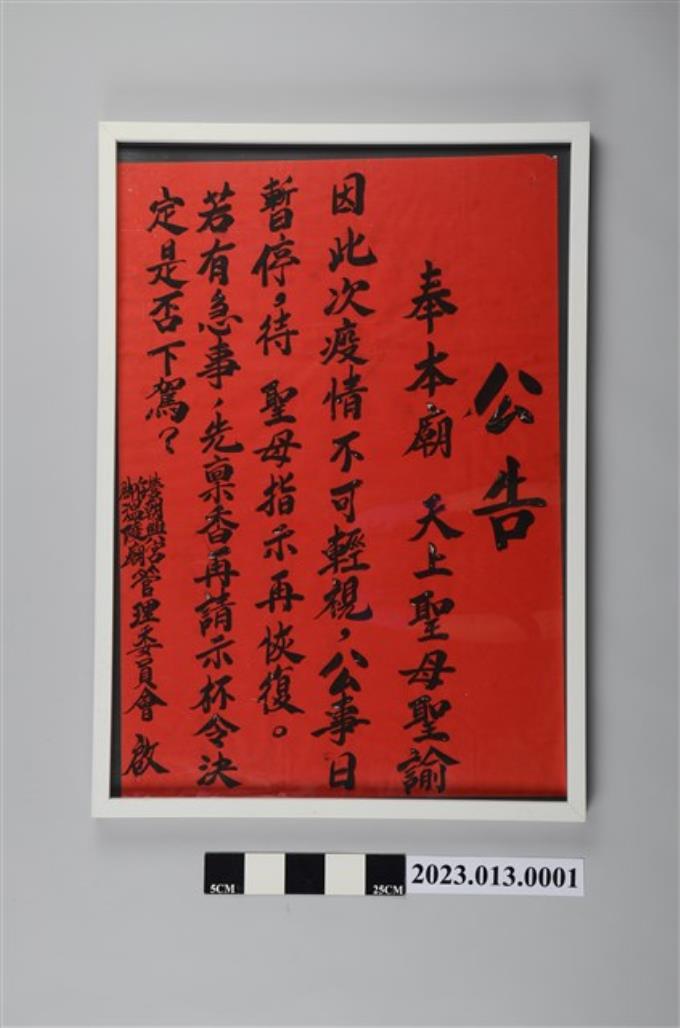 公告
奉本廟 天上聖母聖諭
因此次疫情不可輕視，公事日
暫停。待 聖母指示再恢復。
若有急事，先稟香再請示杯令決
定是否下駕？
管理委員會 啟
5CM
25CM
2023.013.0001